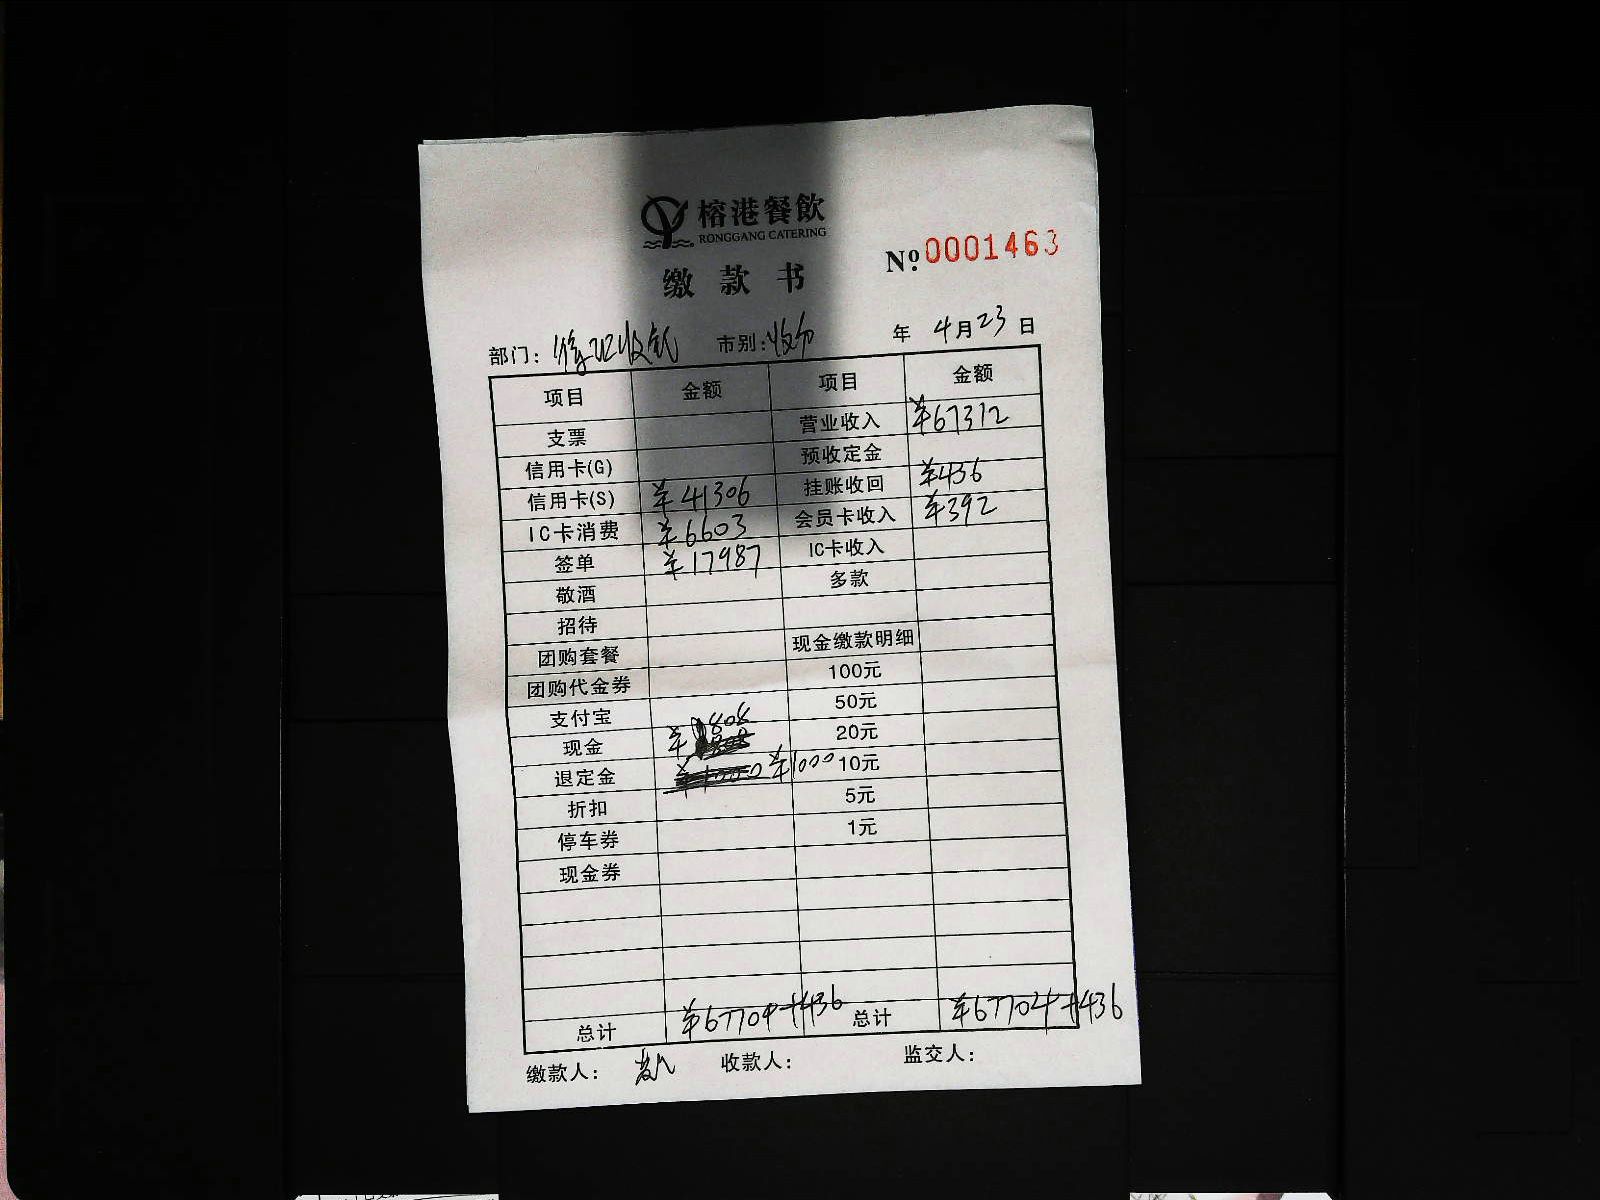 榕港餐飲
RONGGANG CATERING
缴款书
№0001463
部门： 市别: 年 4月23日
项目 金额 项目 金额
支票 营业收入 ¥67312
信用卡(G) 预收定金
信用卡(S) ¥41306 挂账收回 ¥436
IC卡消费 ¥6603 会员卡收入 ¥392
签单 ¥17987 IC卡收入
敬酒 多款
招待
团购套餐 现金缴款明细
团购代金券 100元
支付宝 50元
现金 ¥808 20元
退定金 ¥1000 10元
折扣 5元
停车券 1元
现金券
总计 ¥67704+436 总计 ¥67704+436
缴款人： 收款人： 监交人：